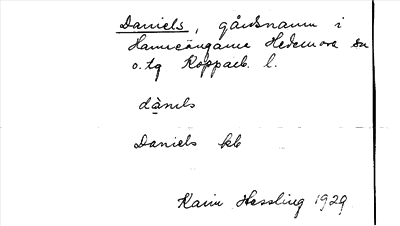 Daniels, gårdsnamn i
Hamreängarna Hedemora sn
o. tg Kopparb. l.
dànels
Daniels kb
Karin Hessling 1929